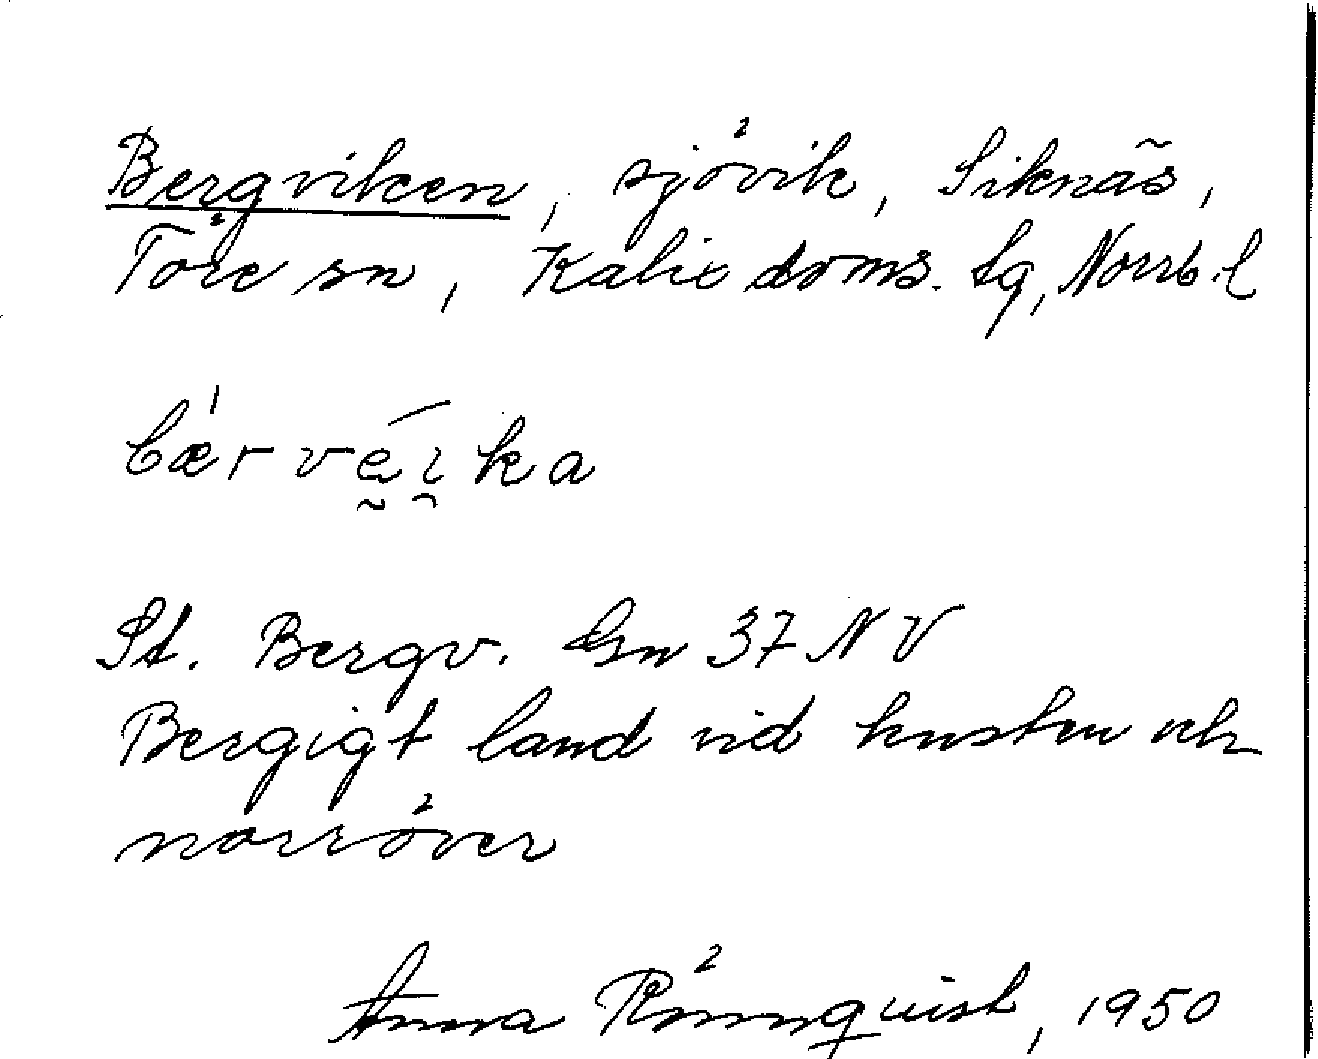 Bergviken, sjövik, Siknäs,
Töre sn, Kalix doms. tg, Norrb. l
bærvḛi̯ka
St. Bergv. Gn 37 NV
Bergigt land vid kusten och
norröver
Anna Rönnquist, 1950